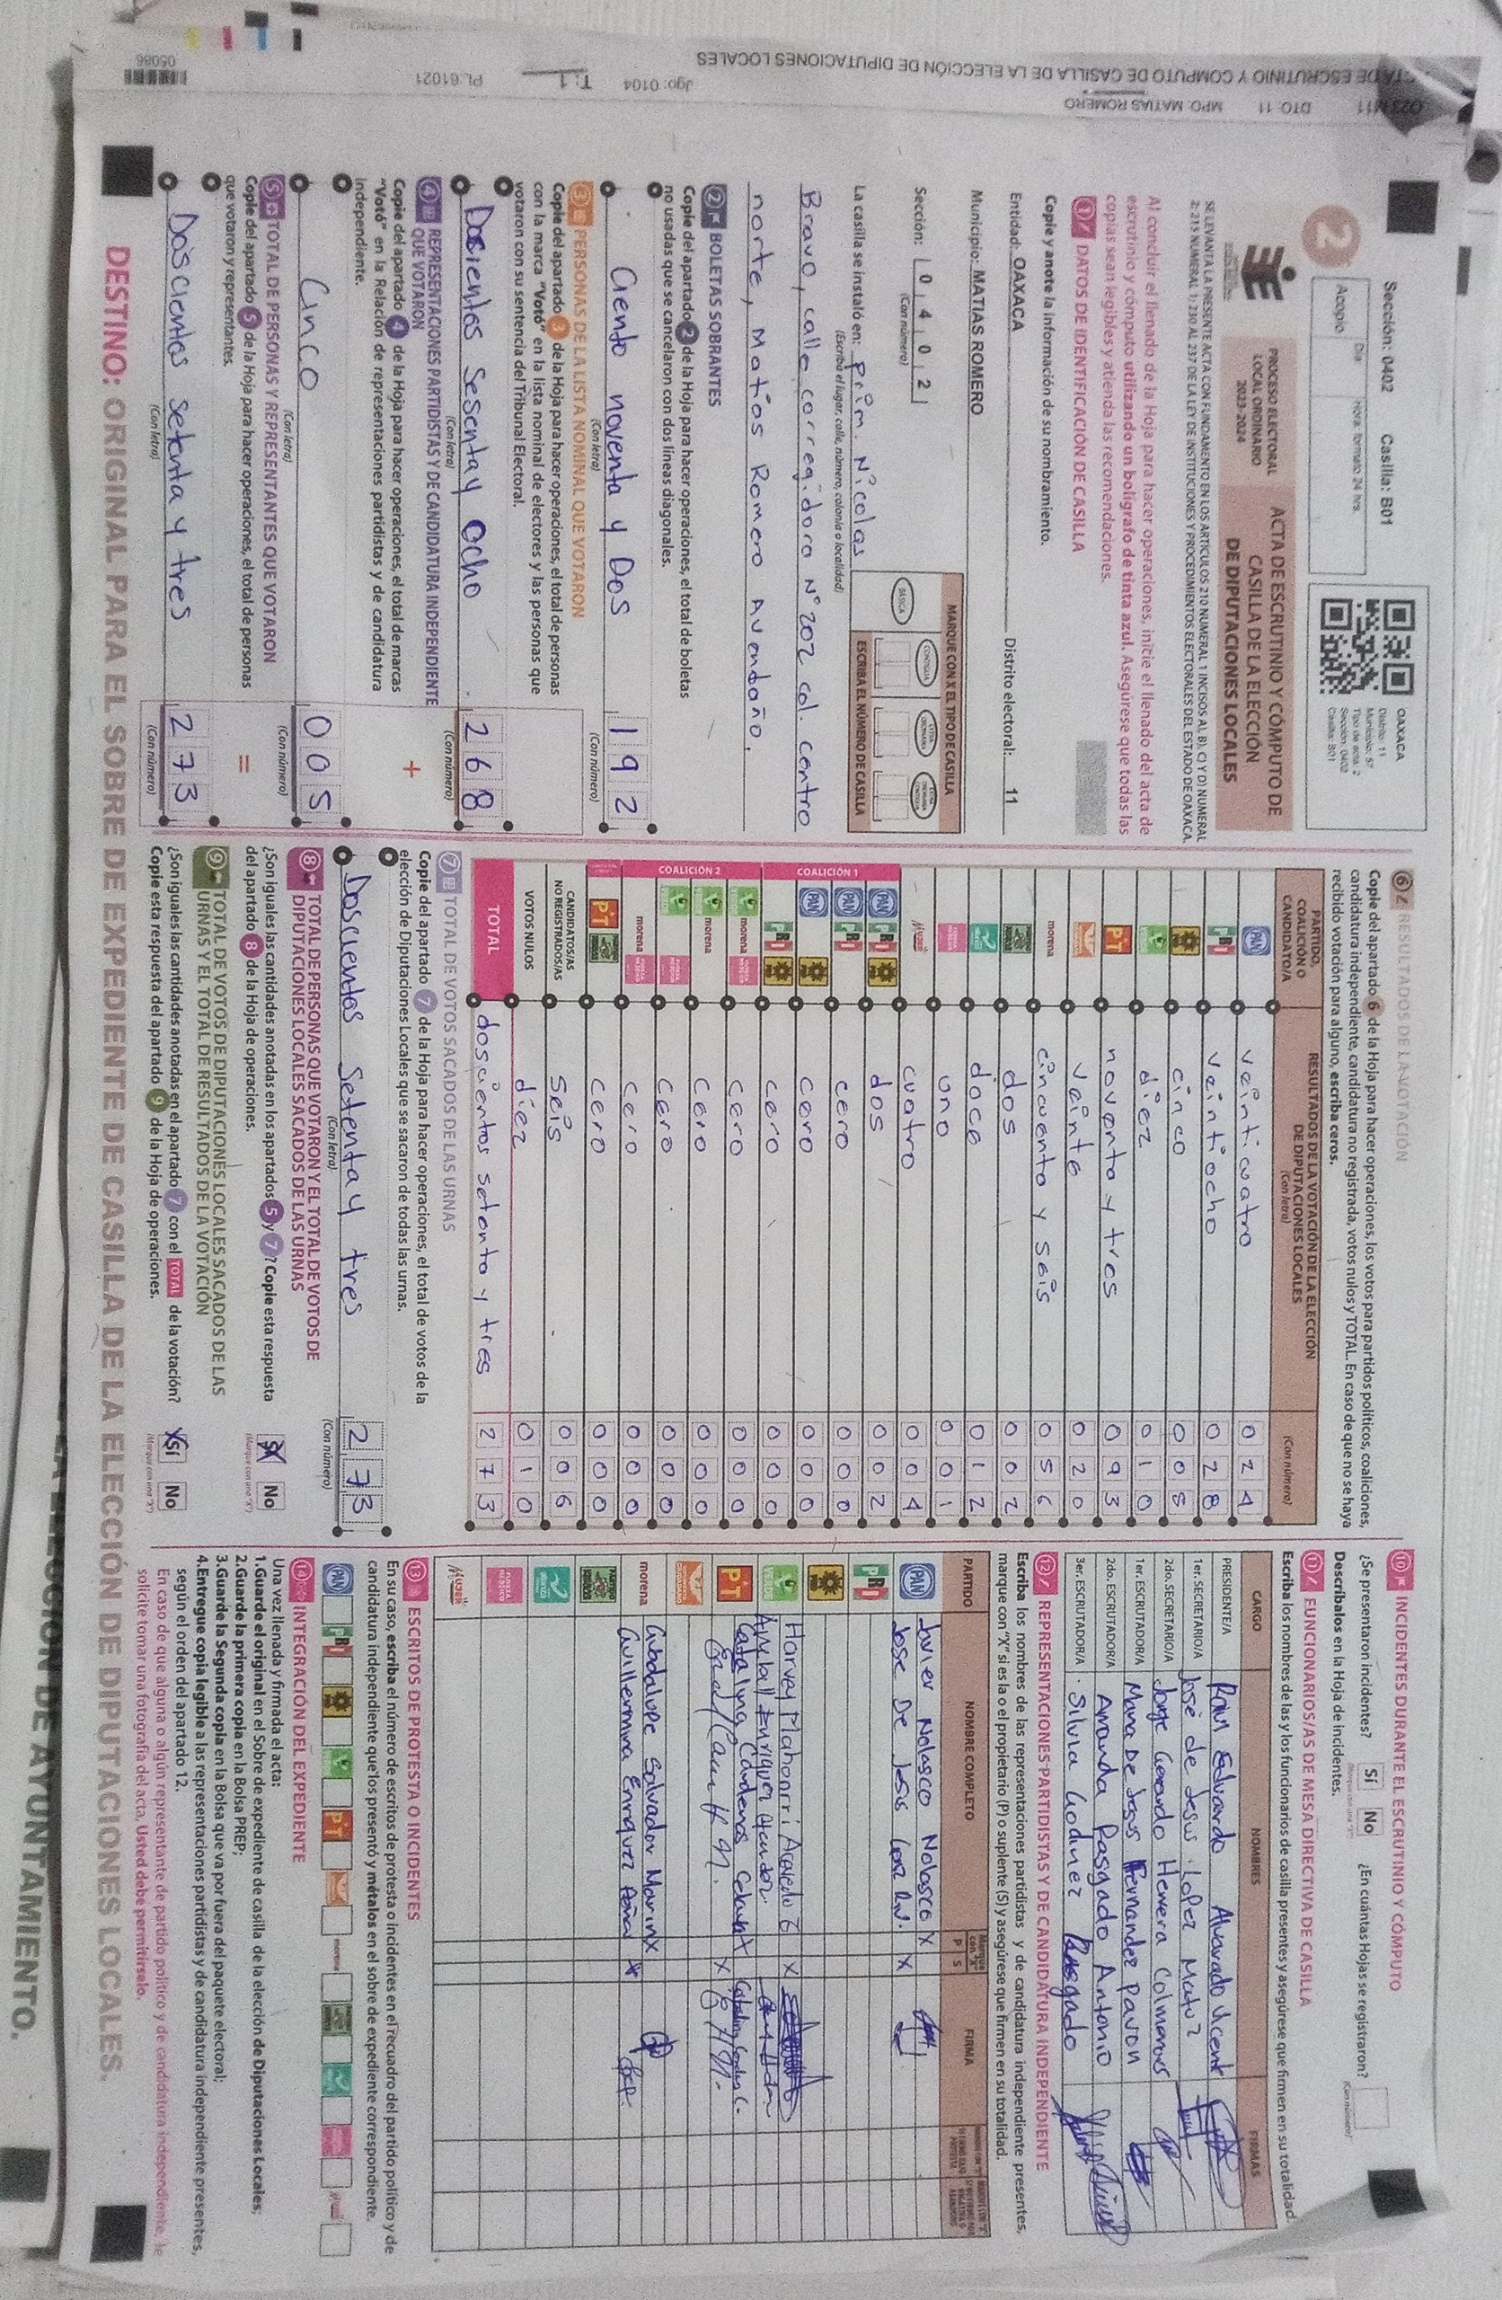 ACTA DE ESCRUTINIO Y COMPUTO DE CASILLA DE LA ELECCIÓN DE DIPUTACIONES LOCALES
DTO. 11 MPO. MATIAS ROMERO
Jgo: 0104 T: 1 PL.61021
05086
Sección: 0402 Casilla: B01
Acopio Día Hora: formato 24 hrs.
OAXACA
Distrito: 11
Municipio: 57
Tipo de acta: 2
Sección: 0402
Casilla: B01
2
PROCESO ELECTORAL
LOCAL ORDINARIO
2023-2024
ACTA DE ESCRUTINIO Y CÓMPUTO DE
CASILLA DE LA ELECCIÓN
DE DIPUTACIONES LOCALES
SE LEVANTA LA PRESENTE ACTA CON FUNDAMENTO EN LOS ARTÍCULOS 210 NUMERAL 1 INCISOS A), B), C) Y D) NUMERAL
2; 215 NUMERAL 1; 230 AL 237 DE LA LEY DE INSTITUCIONES Y PROCEDIMIENTOS ELECTORALES DEL ESTADO DE OAXACA.
Al concluir el llenado de la Hoja para hacer operaciones, inicie el llenado del acta de
escrutinio y cómputo utilizando un bolígrafo de tinta azul. Asegúrese que todas las
copias sean legibles y atienda las recomendaciones.
1 DATOS DE IDENTIFICACIÓN DE CASILLA
Copie y anote la información de su nombramiento.
Entidad: OAXACA Distrito electoral: 11
Municipio: MATIAS ROMERO
Sección: 0402
(Con número)
MARQUE CON X EL TIPO DE CASILLA
BÁSICA CONTIGUA
ESCRIBA EL NÚMERO DE CASILLA
La casilla se instaló en: prim. Nicolas
(Escriba el lugar, calle, número, colonia o localidad)
Bravo, calle corregidora N° 202 col. centro
norte, Matías Romero Avendaño.
2 BOLETAS SOBRANTES
Copie del apartado 2 de la Hoja para hacer operaciones, el total de boletas
no usadas que se cancelaron con dos líneas diagonales.
Ciento noventa y Dos 192
(Con letra) (Con número)
3 PERSONAS DE LA LISTA NOMINAL QUE VOTARON
Copie del apartado 3 de la Hoja para hacer operaciones, el total de personas
con la marca "Votó" en la lista nominal de electores y las personas que
votaron con su sentencia del Tribunal Electoral.
Docientos Sesenta y Ocho 268
(Con letra) (Con número)
4 REPRESENTACIONES PARTIDISTAS Y DE CANDIDATURA INDEPENDIENTE
QUE VOTARON
Copie del apartado 4 de la Hoja para hacer operaciones, el total de marcas
"Votó" en la Relación de representaciones partidistas y de candidatura
independiente.
+
Cinco 005
(Con letra) (Con número)
5 TOTAL DE PERSONAS Y REPRESENTANTES QUE VOTARON
Copie del apartado 5 de la Hoja para hacer operaciones, el total de personas
que votaron y representantes.
=
Doscientos setenta y tres 273
(Con letra) (Con número)
6 RESULTADOS DE LA VOTACIÓN
Copie del apartado 6 de la Hoja para hacer operaciones, los votos para partidos políticos, coaliciones,
candidatura independiente, candidatura no registrada, votos nulos y TOTAL. En caso de que no se haya
recibido votación para alguno, escriba ceros.
PARTIDO, COALICIÓN O CANDIDATO/A
RESULTADOS DE LA VOTACIÓN DE LA ELECCIÓN DE DIPUTACIONES LOCALES
(Con letra) (Con número)
PAN veinticuatro 024
PRI veintiocho 028
PRD cinco 005
diez 010
PT noventa y tres 093
veinte 020
morena cincuenta y seis 056
dos 002
doce 012
uno 001
MUJER cuatro 004
PAN PRI PRD dos 002
COALICIÓN 1
PAN PRI cero 000
PAN PRD cero 000
PRI PRD cero 000
COALICIÓN 2
morena cero 000
morena cero 000
cero 000
morena cero 000
PT cero 000
CANDIDATOS/AS NO REGISTRADOS/AS seis 006
VOTOS NULOS diez 010
TOTAL doscientos setenta y tres 273
7 TOTAL DE VOTOS SACADOS DE LAS URNAS
Copie del apartado 7 de la Hoja para hacer operaciones, el total de votos de la
elección de Diputaciones Locales que se sacaron de todas las urnas.
Doscientos Setenta y tres 273
(Con letra) (Con número)
8 TOTAL DE PERSONAS QUE VOTARON Y EL TOTAL DE VOTOS DE
DIPUTACIONES LOCALES SACADOS DE LAS URNAS
¿Son iguales las cantidades anotadas en los apartados 5 y 7? Copie esta respuesta
del apartado 8 de la Hoja de operaciones.
Sí No
(Marque con una "X")
9 TOTAL DE VOTOS DE DIPUTACIONES LOCALES SACADOS DE LAS
URNAS Y EL TOTAL DE RESULTADOS DE LA VOTACIÓN
¿Son iguales las cantidades anotadas en el apartado 7 con el TOTAL de la votación?
Copie esta respuesta del apartado 9 de la Hoja de operaciones.
X Sí No
(Marque con una "X")
10 INCIDENTES DURANTE EL ESCRUTINIO Y CÓMPUTO
¿Se presentaron incidentes? Sí No ¿En cuántas Hojas se registraron?
(Marque con una "X") (Con número)
Descríbalos en la Hoja de incidentes.
11 FUNCIONARIOS/AS DE MESA DIRECTIVA DE CASILLA
Escriba los nombres de las y los funcionarios de casilla presentes y asegúrese que firmen en su totalidad.
CARGO NOMBRES FIRMAS
PRESIDENTE/A Eduardo Alvarado Vicente
1er. SECRETARIO/A José de Jesus Lopez Matuz
2do. SECRETARIO/A Jorge Gerardo Herrera Colmenares
1er. ESCRUTADOR/A Maria De Jesus Fernandez Pavon
2do. ESCRUTADOR/A Amanda Pasgado Antonio
3er. ESCRUTADOR/A Silvia Godinez Rasgado
12 REPRESENTACIONES PARTIDISTAS Y DE CANDIDATURA INDEPENDIENTE
Escriba los nombres de las representaciones partidistas y de candidatura independiente presentes,
marque con "X" si es la o el propietario (P) o suplente (S) y asegúrese que firmen en su totalidad.
PARTIDO NOMBRE COMPLETO Marque con "X" P S FIRMA
PAN Javier Nolasco Nolasco X
Jose De Jesus X
PRI
PRD
Harvey Acevedo X
Enriquez
PT Catalina Cardenas X
morena Guadalupe Salvador Marin X
Guillermina Enriquez X
MUJER
13 ESCRITOS DE PROTESTA O INCIDENTES
En su caso, escriba el número de escritos de protesta o incidentes en el recuadro del partido político y de
candidatura independiente que los presentó y métalos en el sobre de expediente correspondiente.
PAN PRI PRD PT morena
14 INTEGRACIÓN DEL EXPEDIENTE
Una vez llenada y firmada el acta:
1.Guarde el original en el Sobre de expediente de casilla de la elección de Diputaciones Locales;
2.Guarde la primera copia en la Bolsa PREP;
3.Guarde la Segunda copia en la Bolsa que va por fuera del paquete electoral;
4.Entregue copia legible a las representaciones partidistas y de candidatura independiente presentes,
según el orden del apartado 12.
En caso de que alguna o algún representante de partido político y de candidatura independiente, le
solicite tomar una fotografía del acta, Usted debe permitírselo.
DESTINO: ORIGINAL PARA EL SOBRE DE EXPEDIENTE DE CASILLA DE LA ELECCIÓN DE DIPUTACIONES LOCALES.
DE AYUNTAMIENTO.